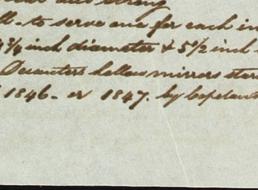 to serve one for each in
4 3/4 inch diameter & 5 1/2 inch
Decanters hollow mirrors
1846 - or 1847. by Copeland